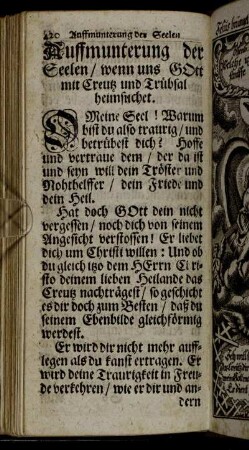 220 Auffmunterung der Seelen
Auffmunterung der
Seelen / wenn uns GOtt
mit Creutz und Trübsal
heimsuchet.
O Meine Seel! Warum
bist du also traurig / und
betrübest dich? Hoffe
und vertraue dem / der da ist
und seyn will dein Tröster und
Nohthelffer / dein Friede und
dein Heil.
Hat doch GOtt dein nicht
vergessen / noch dich von seinem
Angesicht verstossen! Er liebet
dich um Christi willen: Und ob
du gleich itzo dem HErrn Chri-
sto deinem lieben Heilande das
Creutz nachträgest / so geschicht
es dir doch zum Besten / daß du
seinem Ebenbilde gleichförmig
werdest.
Er wird dir nicht mehr auff-
legen als du kanst ertragen. Er
wird deine Traurigkeit in Freu-
de verkehren / wie er dir und an-
dern